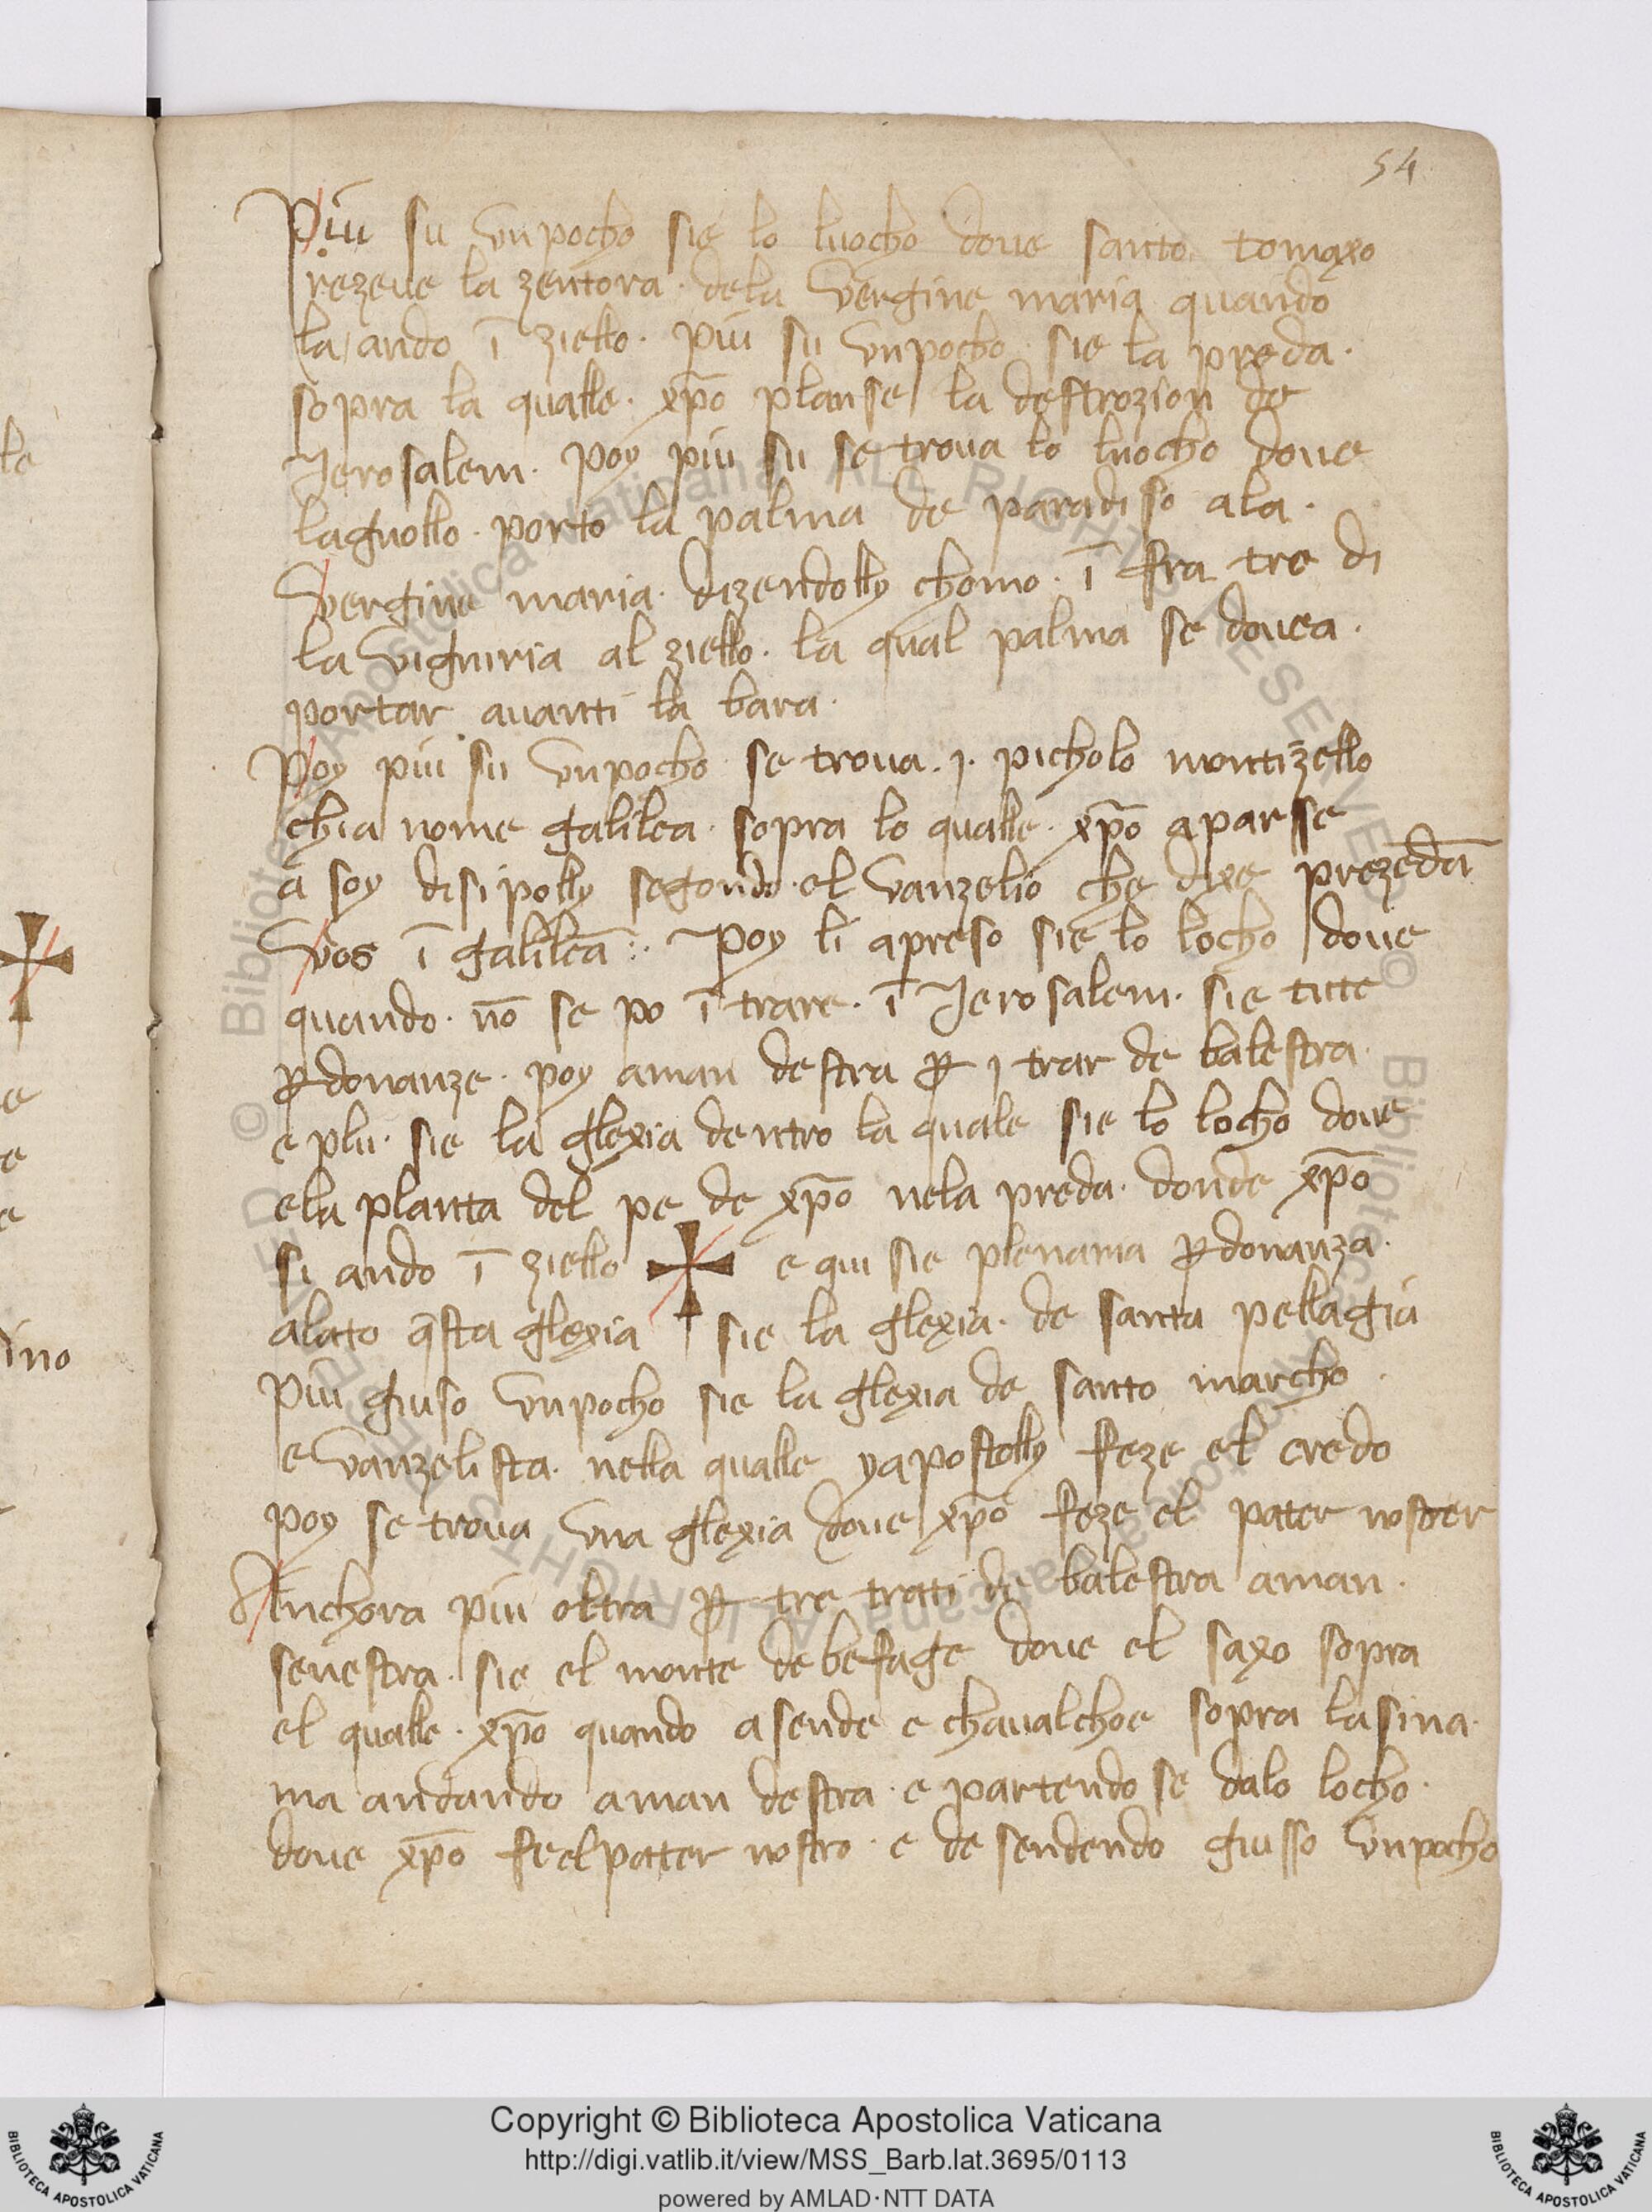 54
Piu su vn pocho sie lo luocho doue santo tomaxo
rezeue la zentora dela vergine maria quando
la ando ī ziello. piu su vn pocho sie la preda.
sopra la qualle. xp̄o planse la destrozion de
Jerosalem. poy piu su se troua lo luocho doue
lagnollo. porto la palma de paradiso ala.
vergine maria. dizendolly chomo. ī fra tre di
la vigniria al ziello. la qual palma se douea.
portar auanti la bara.
Poy piu su vn pocho se troua .j. picholo montizello
chia nome galilea. sopra lo qualle. xp̄o aparse
a soy disipolly segondo. el vanzelio che dixe prezedā
vos ī galileā :. Poy li apreso sie lo locho doue
quando. nō se po ī trare. ī Jerosalem. sie tute
ꝑdonanze. poy aman destra ꝑ j trar de balestra.
e plu. sie la glexia dentro la quale sie lo locho doue
ela planta del pe de xp̄o nela preda. donde xp̄o
si ando ī ziello ✠ e qui sie plenaria ꝑdonanza.
alato q̄sta glexia sie la glexia. de santa pellagia
piu giuso vn pocho sie la glexia de santo marcho.
e vanzelista. nella qualle yapostolly feze el credo
poy se troua vna glexia doue xp̄o feze el pater noster
Anchora piu oltra ꝑ tre trati de balestra aman.
senestra. sie el monte de befage doue el saxo sopra
el qualle. xp̄o quando asende e chaualchoe sopra lasina.
ma andando aman destra. e partendo se dalo locho.
doue xp̄o fe el pater nostro. e desendendo giusso vn pocho
le
e
e
e
ino
Copyright © Biblioteca Apostolica Vaticana
http://digi.vatlib.it/view/MSS_Barb.lat.3695/0113
powered by AMLAD·NTT DATA
BIBLIOTECA APOSTOLICA VATICANA
BIBLIOTECA APOSTOLICA VATICANA